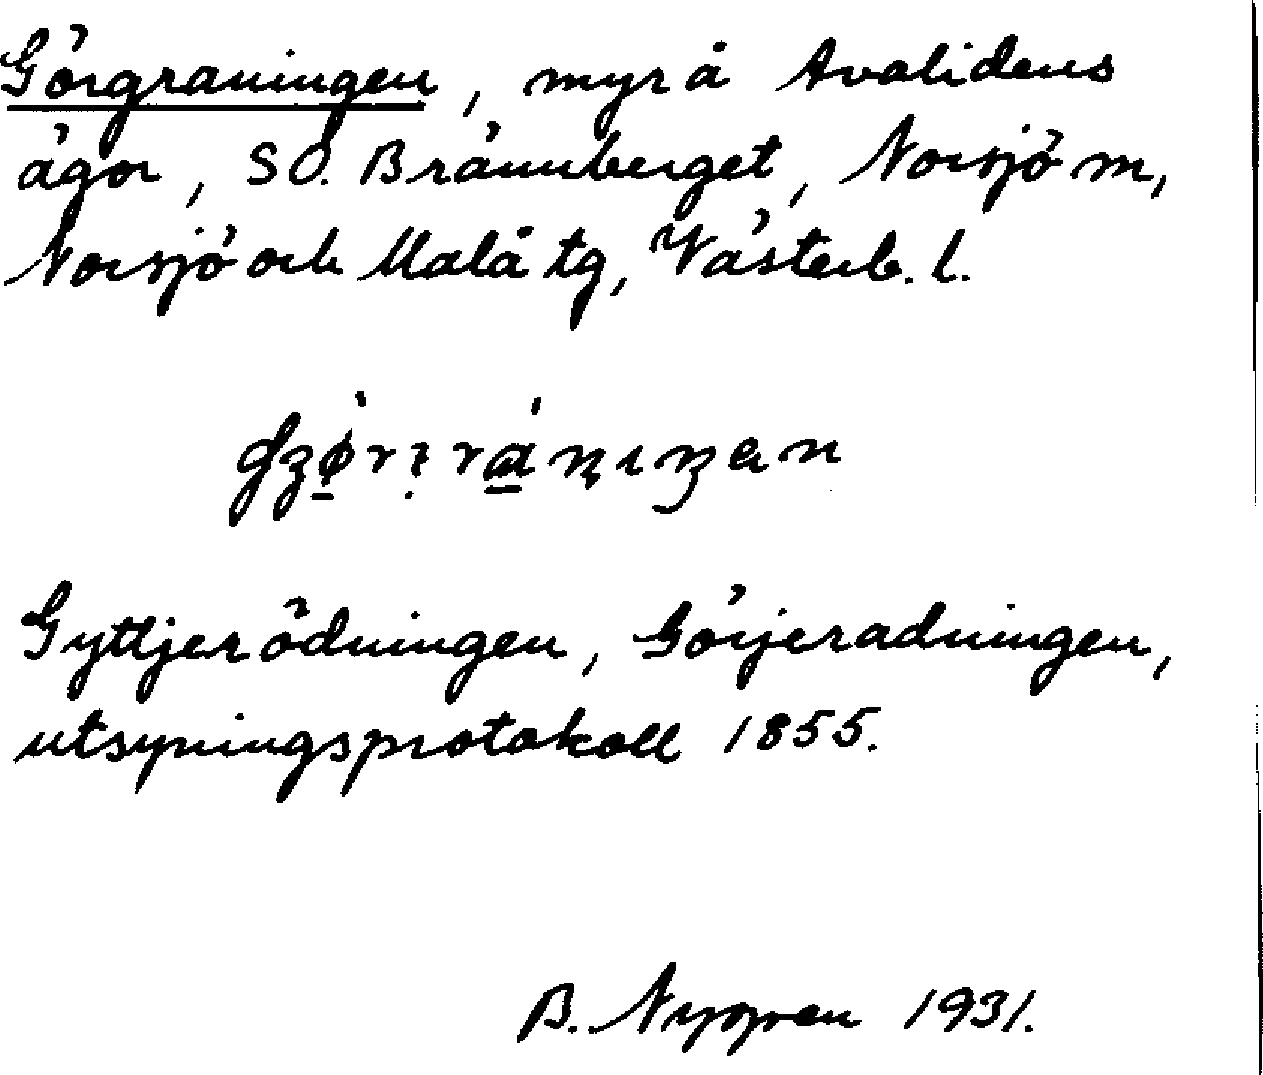 Görgraningen, myr å Avalidens
ägor, SO. Brännberget, Norsjö sn,
Norsjö och Malå tg, Västerb. l.
Gyttjerödningen, Görjeradningen,
utsyningsprotokoll 1855.
B. Nygren 1931.